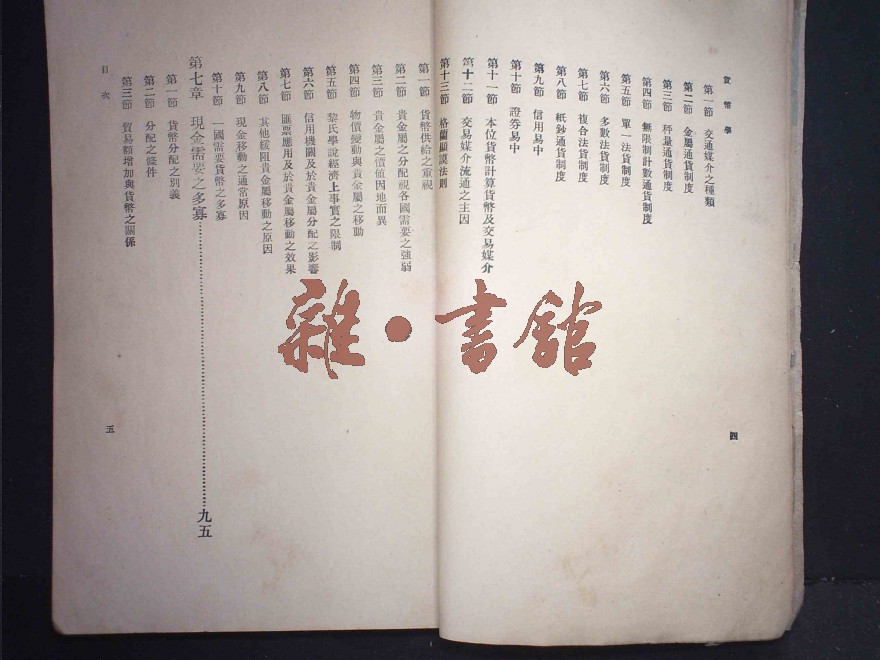 貨幣學
第一節 交通媒介之種類
第二節 金屬通貨制度
第三節 秤量通貨制度
第四節 無限制計數通貨制度
第五節 單一法貨制度
第六節 多數法貨制度
第七節 複合法貨制度
第八節 紙鈔通貨制度
第九節 信用易中
第十節 證券易中
第十一節 本位貨幣計算貨幣及交易媒介
第十二節 交易媒介流通之主因
第十三節 格蘭顯謨法則
四
第一節 貨幣供給之重視
第二節 貴金屬之分配視各國需要之強弱
第三節 貴金屬之價值因地而異
第四節 物價變動與貴金屬之移動
第五節 黎氏學說經濟上事實之限制
第六節 信用機關及於貴金屬分配之影響
第七節 匯票應用及於貴金屬移動之效果
第八節 其他緩阻貴金屬移動之原因
第九節 現金移動之通常原因
第十節 一國需要貨幣之多寡
第七章 現金需要之多寡……九五
第一節 貨幣分配之別義
第二節 分配之條件
第三節 貿易額增加與貨幣之關係
目次
五
雜·書館